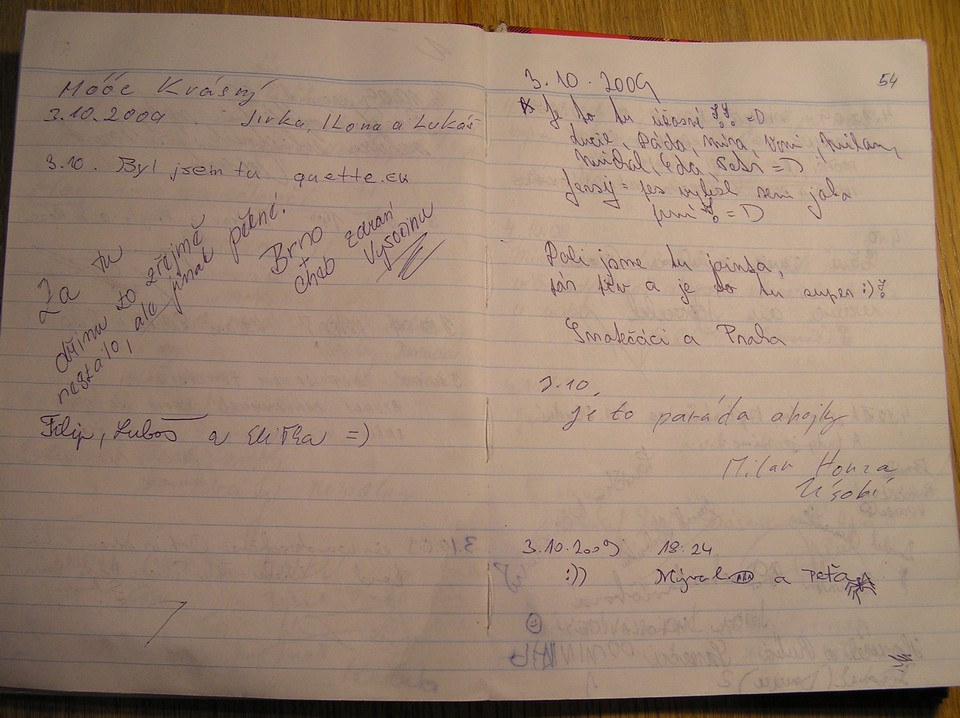 Móóc Krásný
3.10.2009 Jirka, Ilona a Lukáš
3.10. Byl jsem tu quette.eu
Za tu
dřinu to zřejmě
nestálo, ale jinak pěkné!
Brno
+
Cheb zdraví
Vysočinu
Filip, Luboš a Eliška =)
54
3.10.2009
* Je to tu úžasné =D
Lucie, Páďa, Míra, Milan,
Eda, =D
jsem jako
první =D
Pali jsme tu jointa,
a je to tu super :)
a Praha
3.10.
je to paráda ahojky
Milan Honza
Úsobí
3.10.2009 18:24
:)) Mýval a Peťa